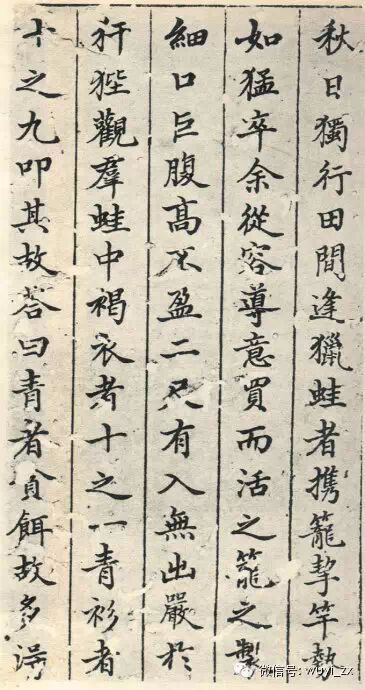 秋日獨行田間逢獵蛙者携籠挚竿勢
如猛卒余從容導意買而活之籠之製
細口巨腹高不盈二尺有入無出嚴於
犴狴觀羣蛙中褐衣者十之一青衫者
十之九叩其故荅曰青者貪餌故多得
微信号: wuyi_zx